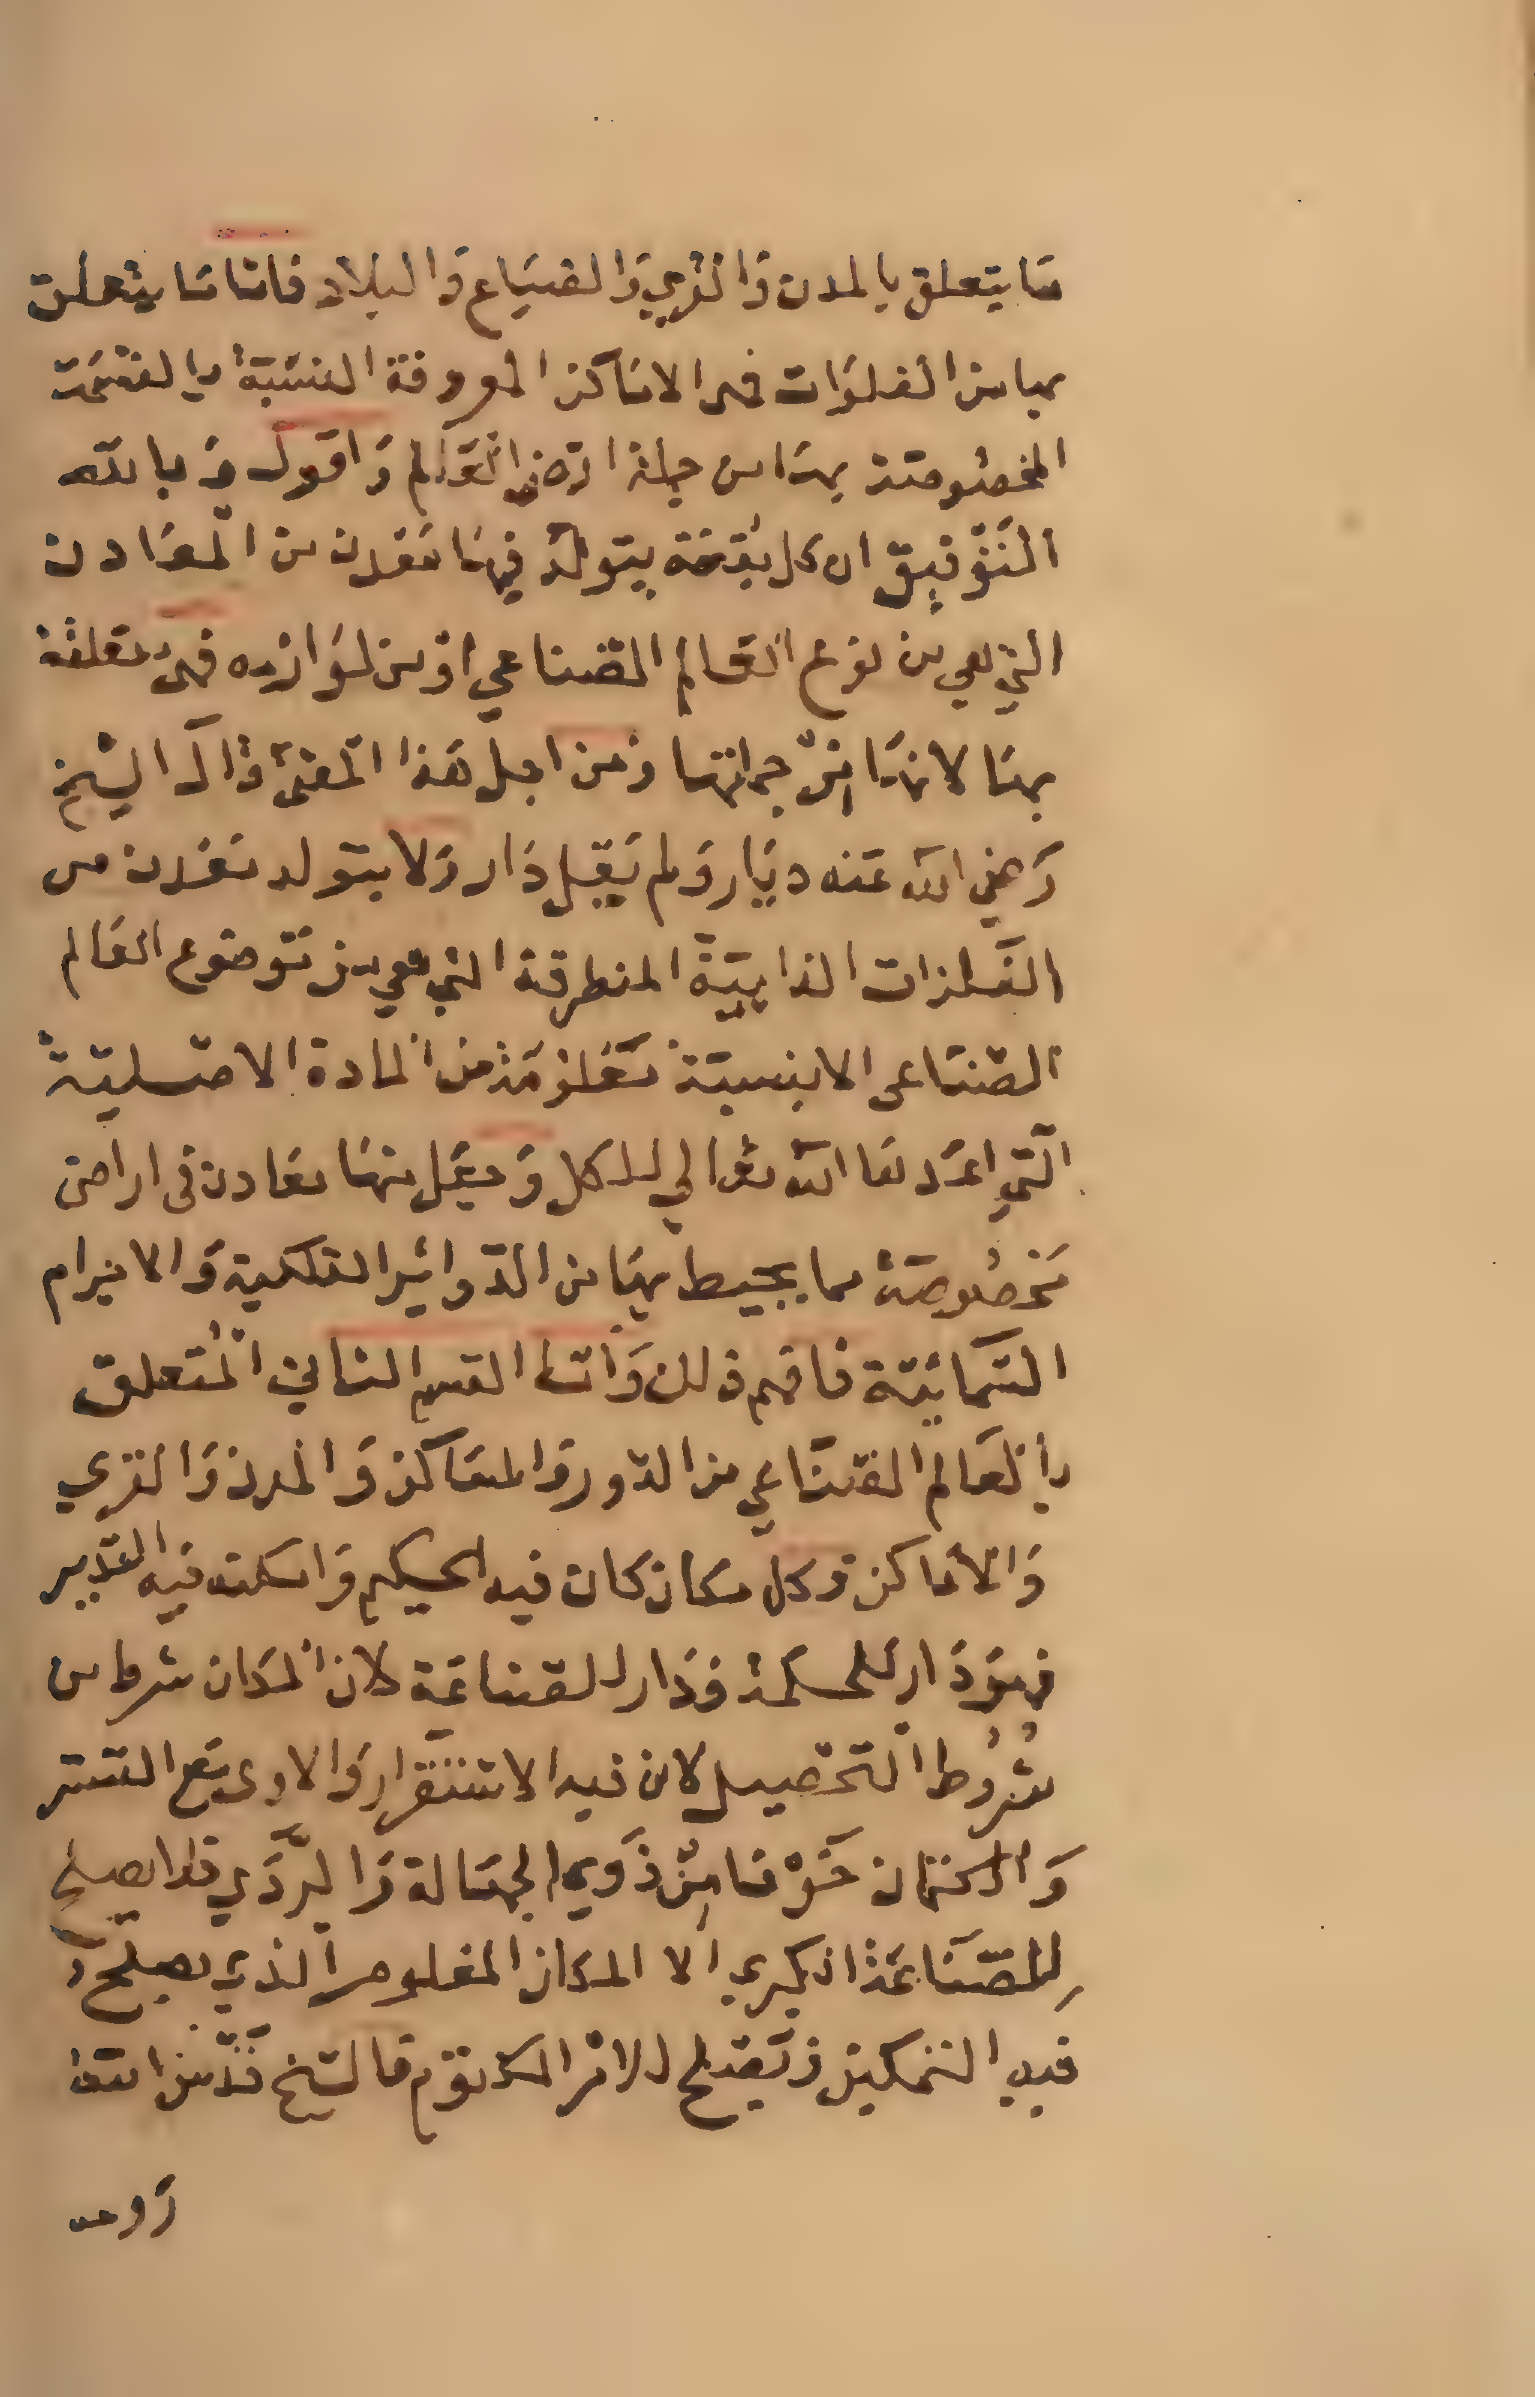 مَا يتعلق بالمدن وَالقري وَالضيَاع وَالبلاد فامّا مَا يتعلق
بها من الفلوَات فهى الامَاكن المعروفة النسبَة بالقسمَة
المخصُوصَة بهَا من جملة ارَاضى العَالم وَاقول وَبالله
التَوْفيق ان كل بقعَة يتولد فيهَا مَعْدن من المعَادن
التي هي من نوع العَالم الصّناعي اوْ من لوَازمه فهى متعلقة
بهَا لانهَا مِن جهاتها وَمن اجل هَذا المعنىٰ قالَ الشيخ
رَضي الله عَنه ديَار وَلم يَقل دَار وَلا يتولد مَعْدن من
الفلزات الذايبَة المنطرقة التي هي من مَوضوع العَالم
الصّنَاعى الا بنسبَة مَعْلومَة من المادة الاصْلية
الّتي اعَدهَا الله تعالي لذلكل وَجعَل منهَا معَادن فى اراضى
مخصُوصَة مما يحيط بهَا من الدّوائر الفلكية وَالاجرام
السّمائيّة فافهم ذلك وَامّا القسم الثاني المُتعلق
بالعَالم الصّنَاعي من الدّور وَالمسَاكن وَالمدن وَالقري
وَالامَاكن وَكل مكان كان فيه الحكيم وَامكنه فيه التدبير
فهوَ دَار للحكمة وَدَار للصّناعَة لان المكان شرط من
شُرُوط التحصيل لان فيه الاستقرَار وَالاوى مَع التستر
وَالكتمان خَوْفا مِنْ ذَوي الجهَالة وَالرَّدَي فلا يصلح
لِلصّنَاعَة الكبري الا المكان المعلوم الذي يصلح
فيه التمكين وَيَصْلح للامْر المكتوم قال الشيخ قَدّسَ الله
رَوحه